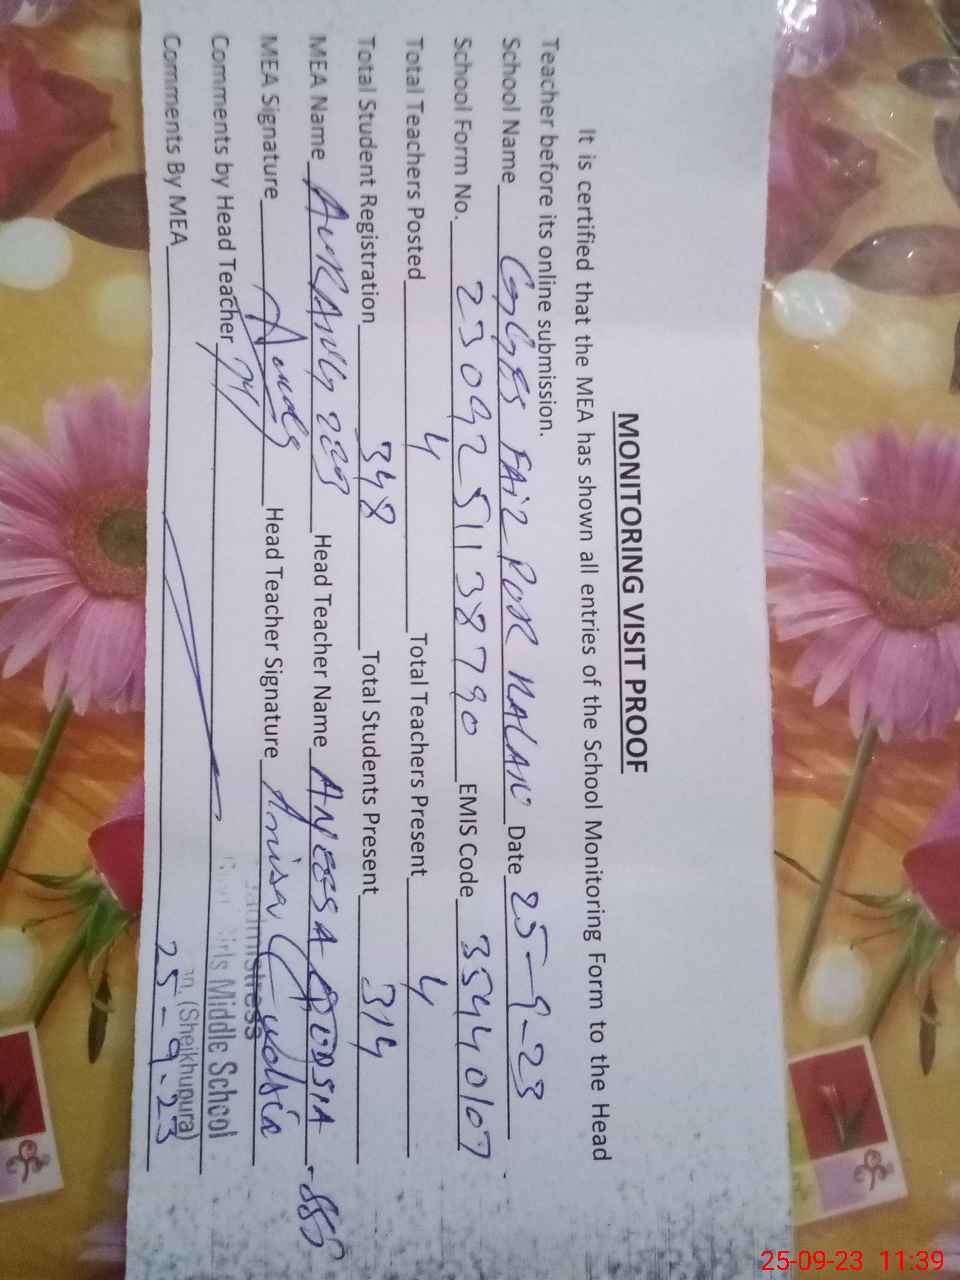 MONITORING VISIT PROOF
It is certified that the MEA has shown all entries of the School Monitoring Form to the Head
Teacher before its online submission.
School Name GGES FAIZ PUR KALAN Date 25-9-23
School Form No. 2309251138790 EMIS Code 35440107
Total Teachers Posted 4 Total Teachers Present 4
Total Student Registration 348 Total Students Present 314
MEA Name AURANG ZEB Head Teacher Name ANEESA QUDSIA
MEA Signature Head Teacher Signature Anisa Qudsia
Comments by Head Teacher
Comments By MEA
Headmistress
Girls Middle School
(Sheikhupura)
25-9-23
25-09-23 11:39